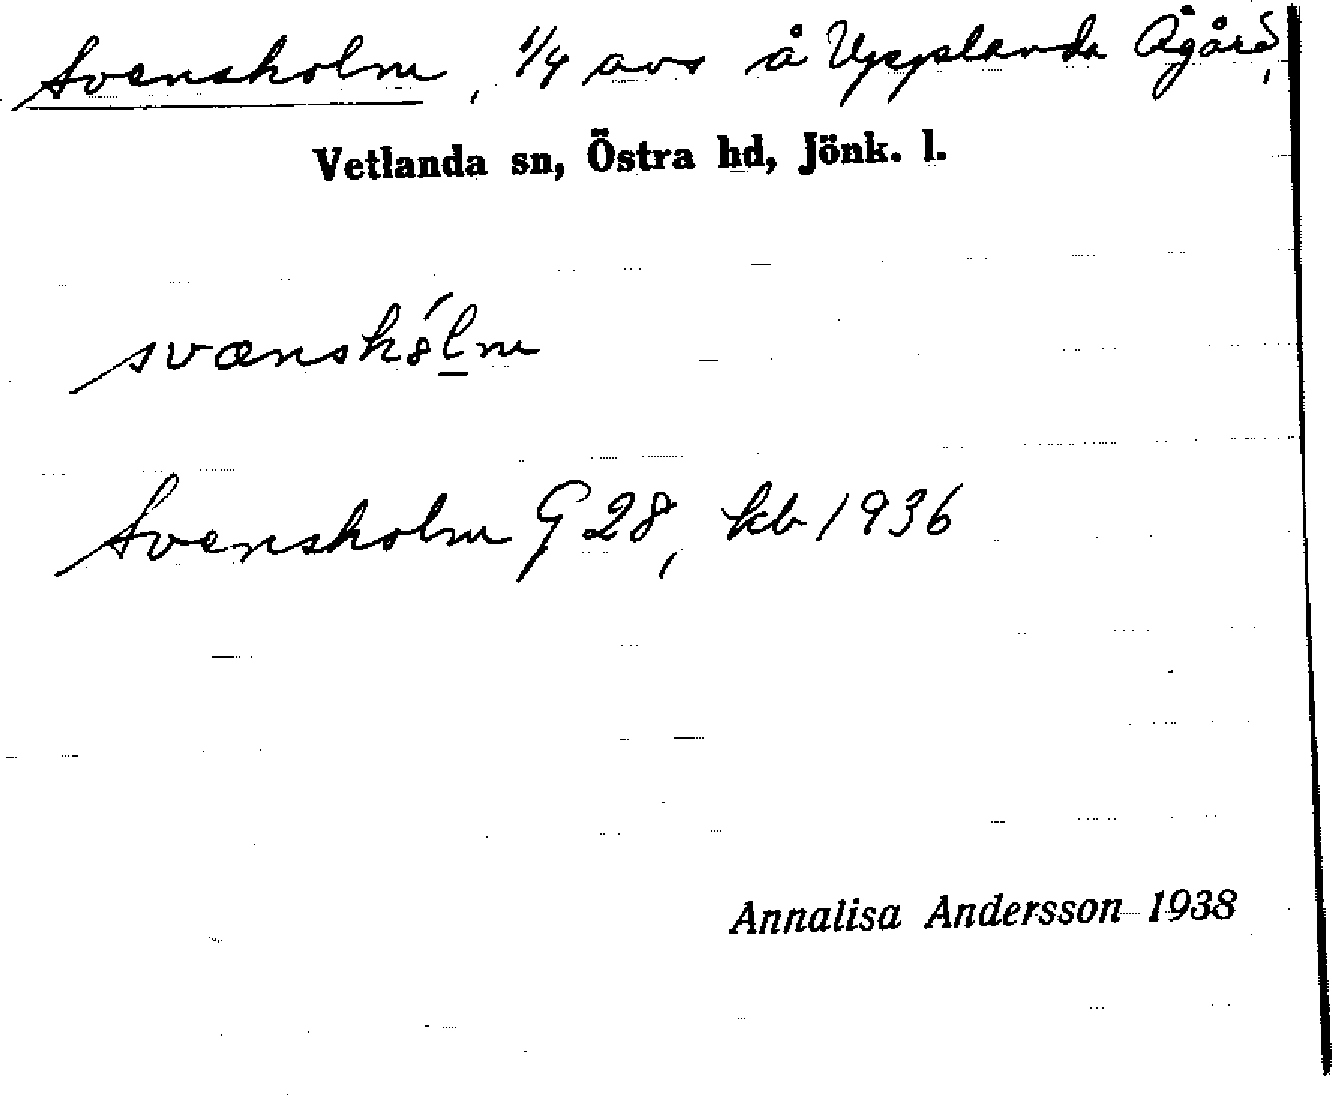 Svensholm, 1/4 avs å Upplanda Ågård,
Vetlanda sn, Östra hd, Jönk. l.
svænshólm
Svensholm G 28, kb 1936
Annalisa Andersson 1938